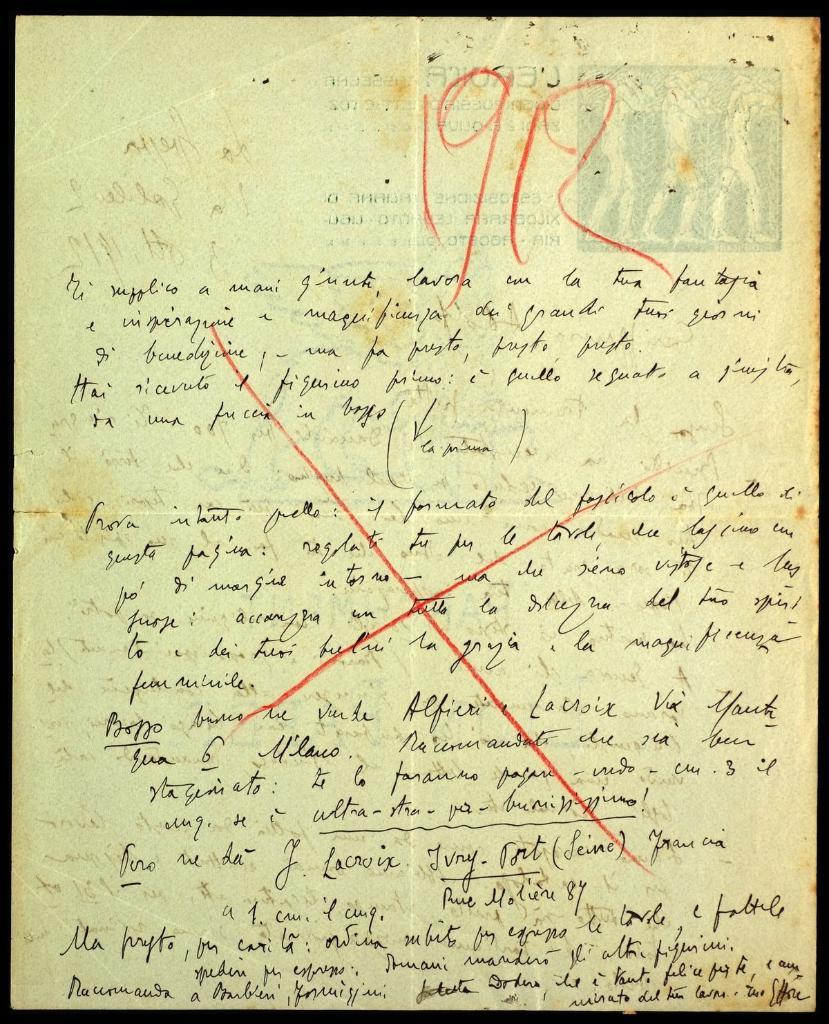 1912
L'EROICA
Ti supplico a mani giunte, lavora con la tua fantasia
e inspirazione e magnificenza dei grandi tuoi giorni
di benedizione, - ma fa presto, presto presto.
Hai ricevuto il figurino primo: è quello segnato a sinistra,
da una freccia in basso
(la prima)
Prova intanto quello: il formato del fascicolo è quello di
questa pagina: regolati tu per le tavole, che lascino un
po' di margine intorno - ma che sieno vistose e lus
suose: accompagna un tutto la dolcezza del tuo spiri
to e dei tuoi bulini la grazia e la magnificenza
femminile.
Bosso buono ne vende Alfieri e Lacroix Via Mante
gna 6 Milano. Raccomandati che sia ben
stagionato: te lo faranno pagare - credo - cm. 3 il
cmq. se è ultra-stra-per-buonissimo!
Pero ne dà J. Lacroix. Ivry-Port (Seine) Francia
Rue Molière 87
a 1. cm. il cmq.
Ma presto, per carità: ordina subito per espresso le tavole, e fattele
spedire per espresso. Domani manderò gli altri figurini.
Raccomanda a Barbieri, Formiggini Dodero, che è tanto felice
del tuo lavoro. Tuo Ettore